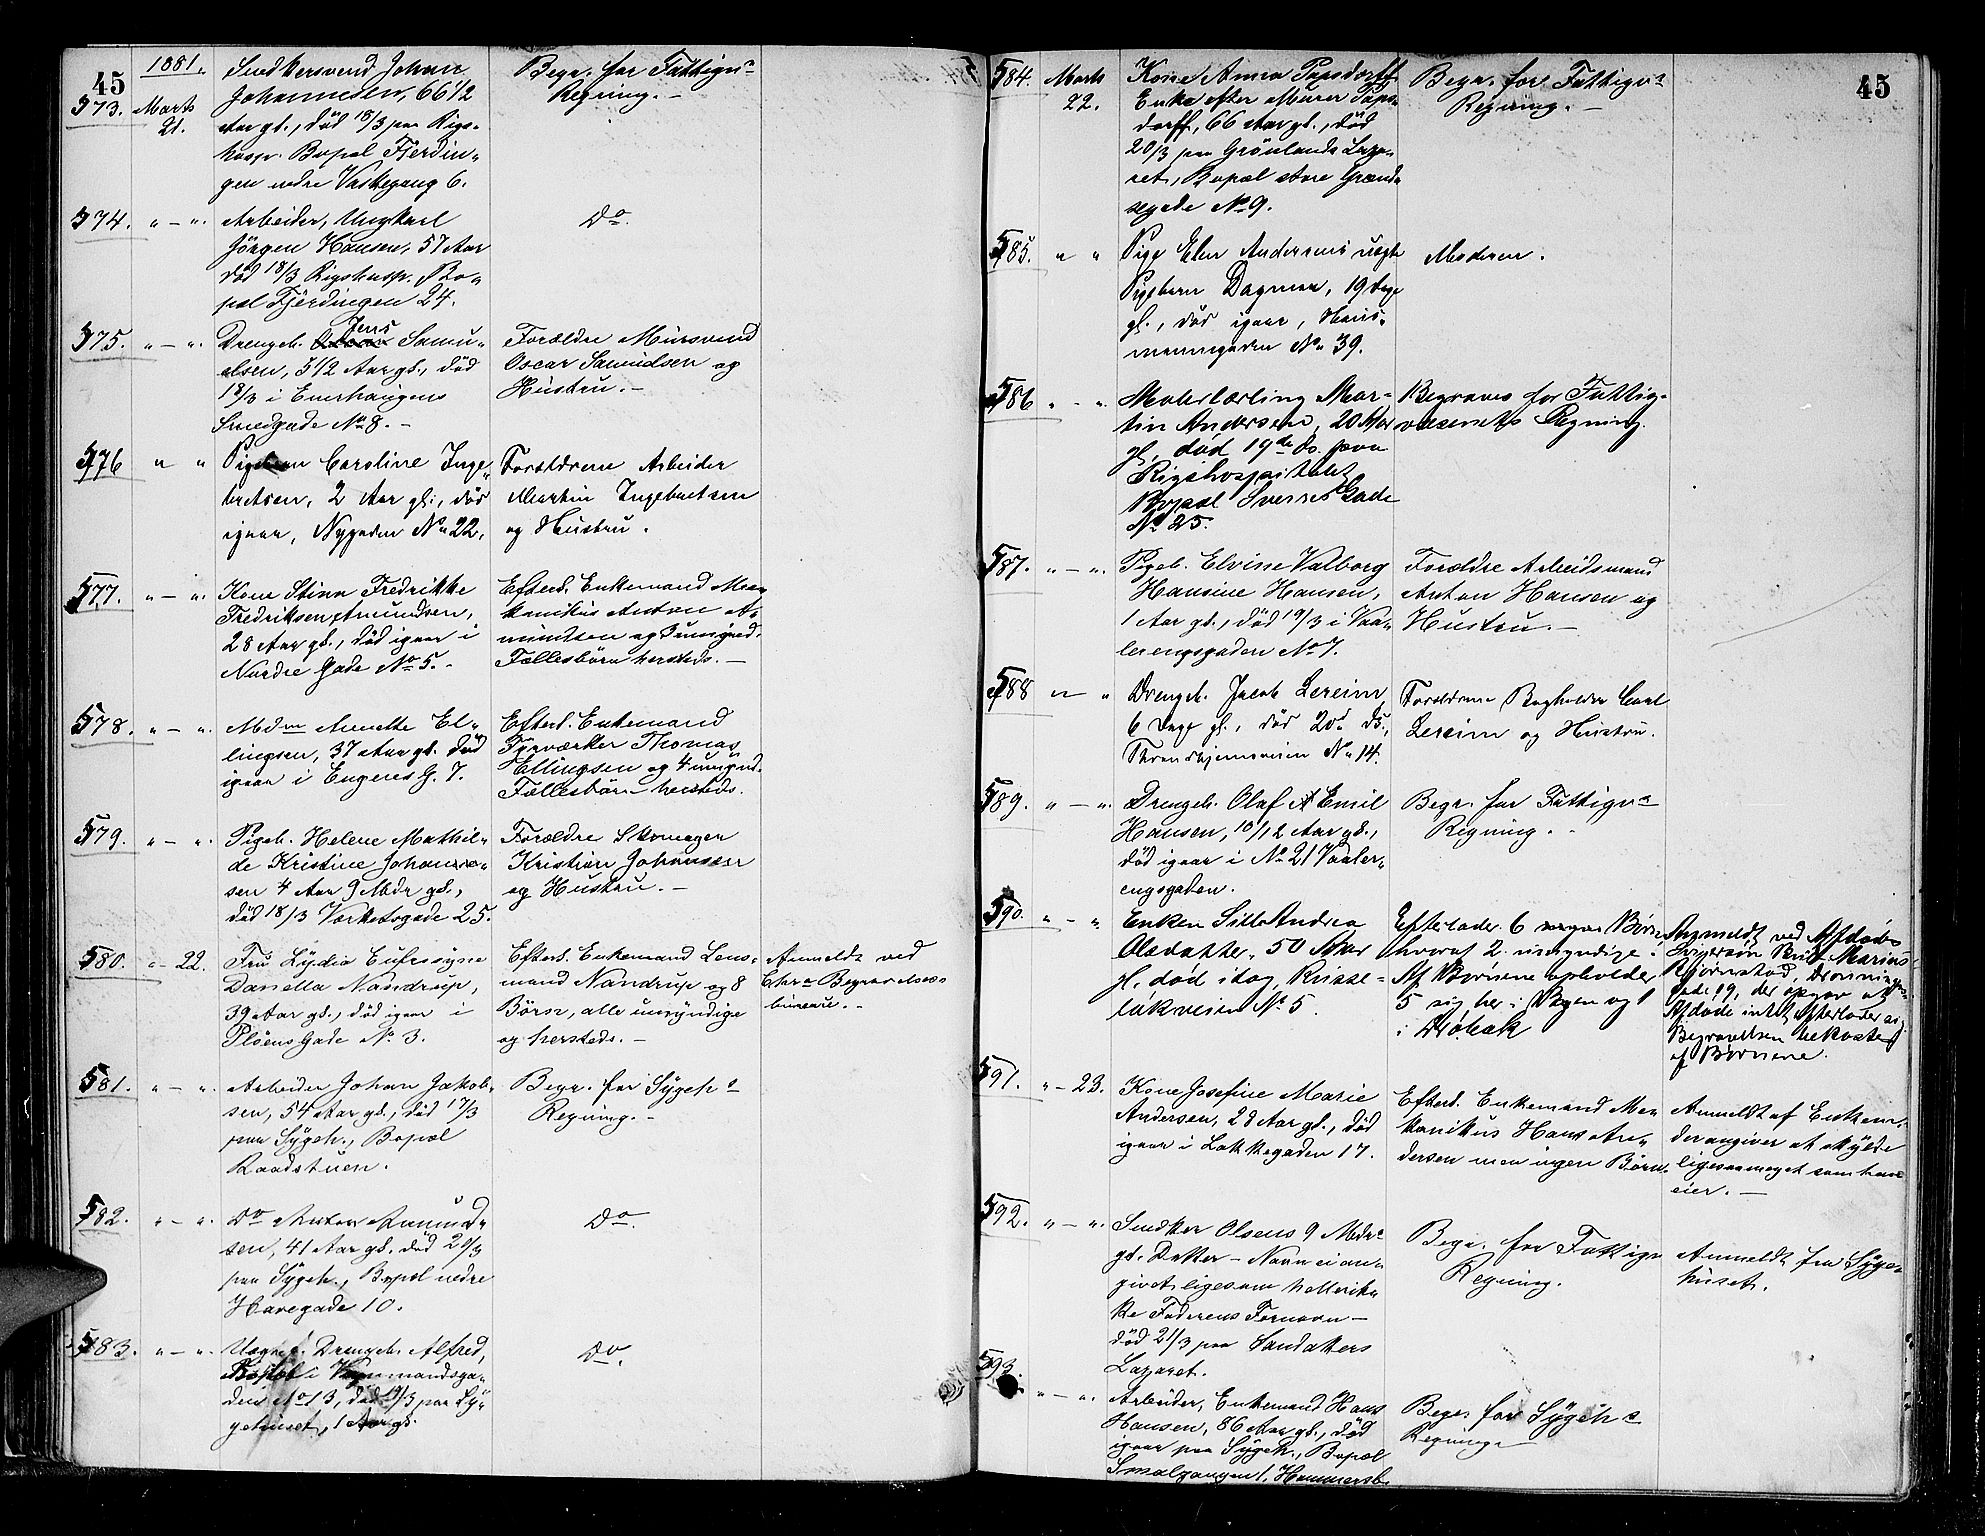 45
1881.
573. Marts 21.
Snedkersvend Johan
Johannesen, 66 1/2
Aar gl., død 18/3 paa Rigs-
hosp. Bopæl Fjerdin-
gen nedre Vaskegang 6.
Begr. for Fattigv.
Regning. —
574. " — ".
Arbeider, Ungkarl
Jörgen Hansen, 57 Aar
död 18/3 Rigshosp. Bo-
pæl Fjerdingen 24.
Do.
575. " — ".
Drengeb. Jens Samu-
elsen, 3 1/2 Aar gl., död
18/3 i Enerhaugens
Smedgade No 8. —
Forældre Mursvend
Oscar Samuelsen og
Hustru. —
576 " "
Pigebarn Caroline Inge-
bretsen, 2 Aar gl., död
igaar, Nygaden No 22.
Forældrene Arbeider
Martin Ingebretsen
og Hustru.
577. " — ".
Kone Stina Fredrikke
Fredriksen Amundsen,
28 Aar gl., död igaar i
Nordre Gade No 5. —
Efterl. Enkemand Me-
kanikus Anton A-
mundsen og 3 umynd.
Fællesbörn hersteds. —
578. " — ".
Mdm Annette El-
lingsen, 37 Aar gl. död
igaar i Engenes G. 7.
Efterl. Enkemand
Fyrværker Thomas
Ellingsen og 4 umynd.
Fællesbörn hersteds.
579. " — ".
Pigeb. Helene Mathil-
de Kristine Johan-
sen 4 Aar 9 Mdr gl.,
död 18/3 Værkstsgade 25.
Forældre Skomager
Kristian Johansen
og Hustru. —
580. " — 22.
Fru Lydia Eufrosyne
Daniella Nandrup,
39 Aar gl., död igaar i
Pløens Gade No 3.
Efterl. Enkemand Lens-
mand Nandrup og 8
Börn, alle umyndige
og hersteds. —
Anmeldt ved
Chra Begravelses-
bureau. —
581. " — ".
Arbeider Johan Jakob-
sen, 54 Aar gl., död 17/3
paa Sygeh., Bopæl
Raadstuen.
Begr. for Sygeh.s
Regning. —
582. " — ".
Do Anton Amund-
sen, 41 Aar gl. död 20/3
paa Sygeh., Bopæl nedre
Havegade 10.
Do.
583. " — ".
Uægte Drengeb. Alfred,
Bopæl i Vognmandsga-
dens No 13, död 19/3 paa Sy-
gehuset, 1 Aar gl.
Do.
45
584. Marts 22.
Kone Anna Papsdorff
Enke efter Murer Paps-
dorff, 66 Aar gl., död
20/3 paa Grönlands Laza-
ret, Bopæl store Grænd-
segade No 9.
Begr. for Fattigv.
Regning. —
585. " "
Pige Elen Andersens uægte
Pigebarn Dagmar, 19 Dage
gl., död igaar, Haus-
mannsgaden No 39.
Moderen.
586 " — ".
Malerlærling Mar-
tin Andersen, 20 Aar
gl. död 19de ds. paa
Rigshospitalet
Bopæl Sverres Gade
No 25.
Begraves for Fattig-
væsenets Regning.
587. " — ".
Pigeb. Elvine Valborg
Hansine Hansen,
1 Aar gl., död 19/3 i Vaa-
lerengsgaden No 7.
Forældre Arbeidsmand
Anton Hansen og
Hustru. —
588 " "
Drengeb. Jacob Lereim
6 Dage gl., död 20d ds.,
Throndhjemsveien No 14.
Forældrene Bogholder Carl
Lereim og Hustru.
589. " — ".
Drengeb. Olaf Emil
Hansen, 10/12 Aar gl.,
död igaar i No 21 Vaaler-
engsgaden.
Begr. for Fattigv.
Regning. —
590. " — "
Enken Sille Andrea
Olsdatter, 50 Aar
gl. død idag, Kisse-
løkveien No 5.
Efterlader 6 Børn,
hvoraf 2 umyndige.
Af Børnene opholder
5 sig her i Byen og 1
i Drøbak
Anmeldt ved Afdødes
Svigersøn Marius
Bjørnstad Dronningens-
Gade 19, der opgav at
Afdøde intet efterlader og
Begravelsen bekostes
af Børnene.
591. " — 23.
Kone Josefine Marie
Andersen, 28 Aar gl., död
igaar i Lakkegaden 17.
Efterl. Enkemand Me-
kanikus Hans An-
dersen men ingen Börn.
Anmeldt af Enkem.
der angiver at skylde
ligesaameget som han
eier. —
592. " — ".
Snedker Olsens 9 Mdrs
gl. Datter — Navn ei an-
givet ligesom heller ik-
ke Faderens Fornavn —
död 21/3 paa Sandakers
Lazaret.
Begr. for Fattigv.
Regning.
Anmeldt fra Syge-
huset.
593. " — ".
Arbeider, Enkemand Hans
Hansen, 86 Aar gl., död
igaar paa Sygeh., Bopæl
Smalgangen 1, Hammersb.
Begr. for Sygeh.s
Regning. —